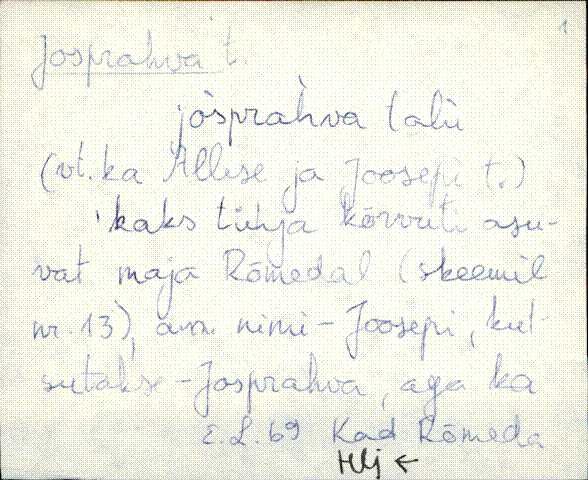 1
Josprahva t.
jòsprahva talu
(vt. ka Alluse ja Joosepi t.)
kaks tühja kõrvuti asu-
vat maja Rõmedal (skeemil
nr. 13), am. nimi - Joosepi, kut-
sutakse - Josprahva, aga ka
E. L. 69 Kad Rõmeda
Hlj ←